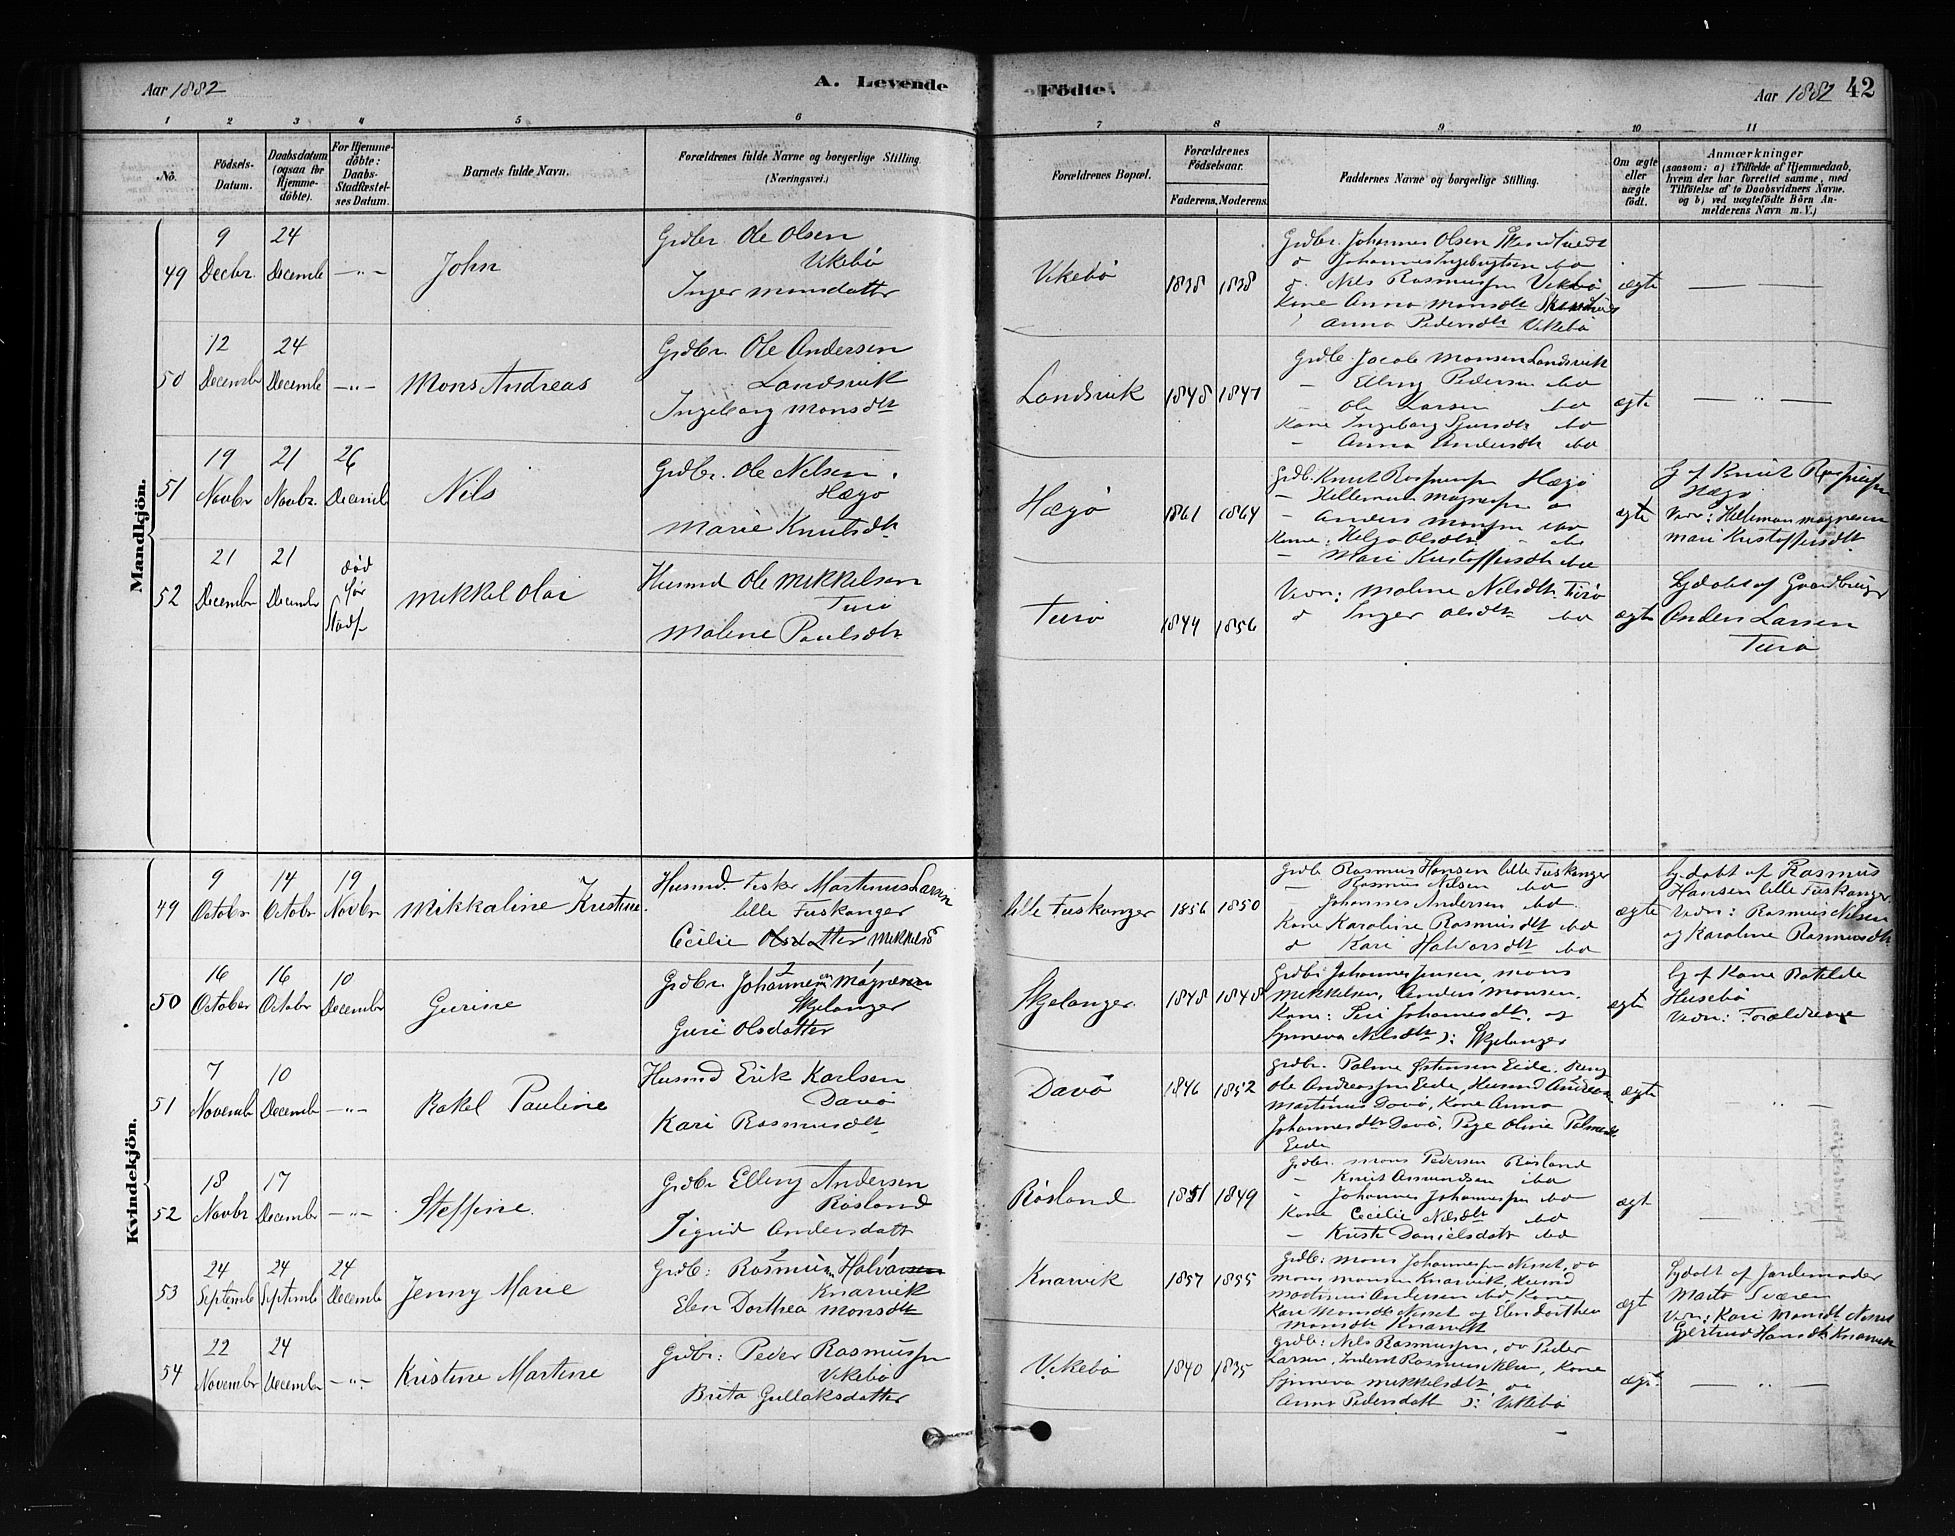 Aar 1882
A. Levende
Födte.
Aar 1882 42
1 2 3 4 5 6 7 8 9 10 11
No.
Födsels-
Datum.
Daabsdatum
(ogsaa for
Hjemme-
döbte).
For Hjemme-
döbte:
Daabs-
Stadfæstel-
ses Datum.
Barnets fulde Navn.
Forældrenes fulde Navne og borgerlige Stilling.
(Næringsvei.)
Forældrenes Bopæl.
Forældrenes
Födselsaar.
Faderens. Moderens.
Faddernes Navne og borgerlige Stilling.
Om ægte
eller
uægte
födt.
Anmærkninger
(saasom: a) i Tilfælde af Hjemmedaab,
hvem der har forrettet samme, med
Tilföielse af to Daabsvidners Navne.
og b) ved uægtefödte Börn An-
melderens Navn m. V.)
Mandkjön.
49
9
Decbr.
24
Decemb
—"—
John
Grdbr. Ole Olsen
Vikebö
Inger Monsdatter
Vikebö
1838 1838
Grdbr. Johannes Olsen
d Johannes Ingebrigtsen ibd
d. Nils Rasmussen Vikebö
Kone Anna Monsdt
Anna Pedersdtr Vikebö
ægte
— —
50
12
Decembr
24
Decemb
—"—
Mons Andreas
Grdbr. Ole Andersen
Landsvik
Ingeborg Monsdtr
Landsvik
1848 1847
Grdb. Jacob Monsen Landsvik
— Elling Pedersen ibd
— Ole Larsen ibd
Kone Ingeborg ibd
— Anna Andersdtr ibd
ægte
— " —
51
19
Novbr
21
Novbr.
26
Decemb
Nils
Grdbr. Ole Nilsen
Hægö
Marie Knutsdtr
Hægö
1861 1864
Grdb. Knut Hægö
— Helleman Magnesen
— Anders Monsen ibd
Kone: Helga Olsdtr ibd
— Mari Kristoffersdtr ibd
ægte
af Knut
Hægö
Vidn: Helleman Magnesen
Mari Kristoffersdtr.
52
21
Decembr
21
Decembr
död
för
Stadf
Mikkel Olai
Husmd Ole Mikkelsen
Turö
Malene Paulsdtr
Turö
1844 1856
Vidn: Malene Nilsdtr Turö
d Inger Olsdtr ibd
ægte
Hjdöbt af Gaardbruger
Anders Larsen
Turö
Kvindekjön.
49
9
Octobr
14
Octobr
19
Novbr
Mikkaline Kristine.
Husmd. Fisker Martinus Larsen
lille Fuskanger
Cecilie Olsdatter Mikkelsd
lille Fuskanger
1856 1850
Grdb Rasmus Hansen lille Fuskanger
— Rasmus Nilsen ibd
Johannes Andersen ibd.
Kone Karoline Rasmusdtr ibd
d Kari Halvorsdtr ibd
ægte
hj.döbt af Rasmus
Hansen lille Fuskanger
Vidn: Rasmus Nilsen
og Karoline Rasmusdtr
50
16
October
16
Octobr
10
Decembr
Gurine
Grdbr. Johannesen Magnesen
Skjelanger
Guri Olsdatter
Skjelanger.
1848 1848
Grdbr Johannes Jensen, Mons
Mikkelsen, Anders Monsen.
Kone: Siri Johannesdtr. og
Synneva Nilsdtr ): Skjelanger
ægte
hj af Kone Botilde
Husebö
Vidn: Forældrene
51
7
Novemb
10
Decemb
—"—
Rakel Pauline
Husmd Erik Karlsen
Davö
Kari Rasmusdtr
Davö
1846 1852
Grdbr. Palme Östensen Eide. Ung
Ole Andreassen Eide, Husmd Andreas
Martinus Davö, Kone Anna
Johannesdtr Davö, Pige Oline Palmesdtr
Eide
ægte
— " —
52
18
Novbr
17
Decembr
—"—
Steffine.
Grdbr Elling Andersen
Rösland
Sigrid Andersdatt
Rösland
1851 1849
Grdbr. Mons Pedersen Rösland
— Knut Amundsen ibd
— Johannes Johannessen ibd
Kone Cecilie Nilsdtr ibd
— Kristi Danielsdatt ibd
ægt
— " —
53
24
Septemb
24
Septemb
24
Decemb
Jenny Marie
Grdb: Rasmussen Halvorsen
Knarvik
Elen Dorthea Monsdtr
Knarvik
1857 1855
Grdb: Mons Johannessen Nesset, og
Mons Monsen Knarvik, Husmd
Martinus Andersen ibd, Kone
Kari Monsdtr Nesset og Elen Dorthea
Monsdtr Knarvik
ægt
Hjdöbt af Jordemoder
Marta Sværen
Vidn: Kari Monsdt Nesset
Gjertrud Hansdtr Knarvik
54
22
Novembr
24
Decembr
—"—
Kristine Martine
Grdbr: Peder Rasmussen
Vikebö
Brita Gullaksdatter
Vikebö
1840 1835
Grdb: Nils Rasmussen, og Peder
Larsen, Rasmus Nilsen, Kone
Synneva Mikkelsdtr og
Anna Pedersdatt ): Vikebö
ægt.
— " —